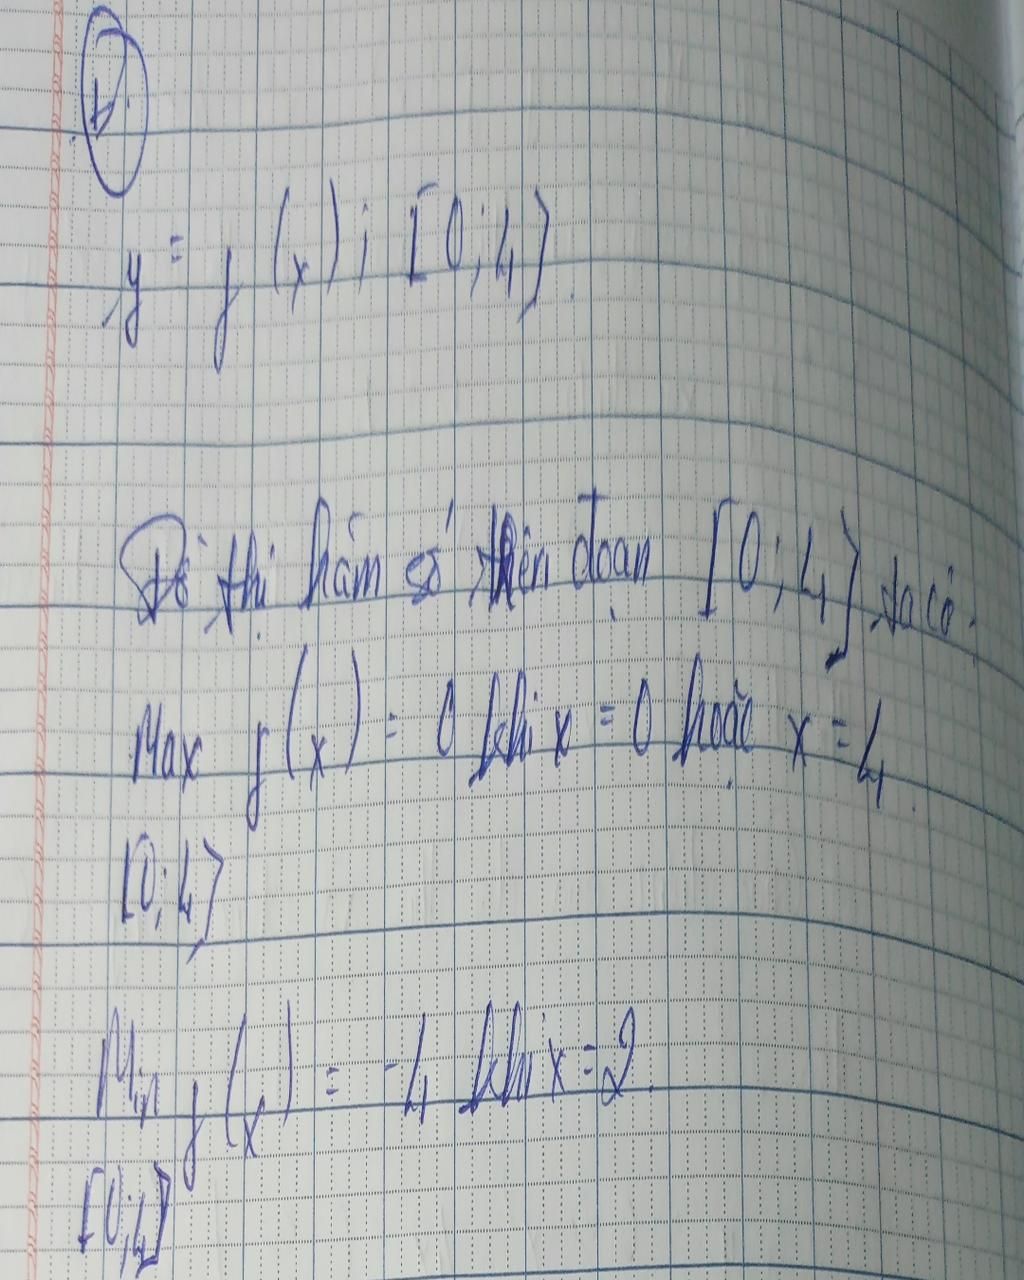 b.
y = f(x); [0; 4].
Đồ thị hàm số trên đoạn [0; 4] ta có.
Max f(x) = 0 khi x = 0 hoặc x = 4.
[0; 4]
Min f(x) = -4 khi x = 2.
[0; 4]